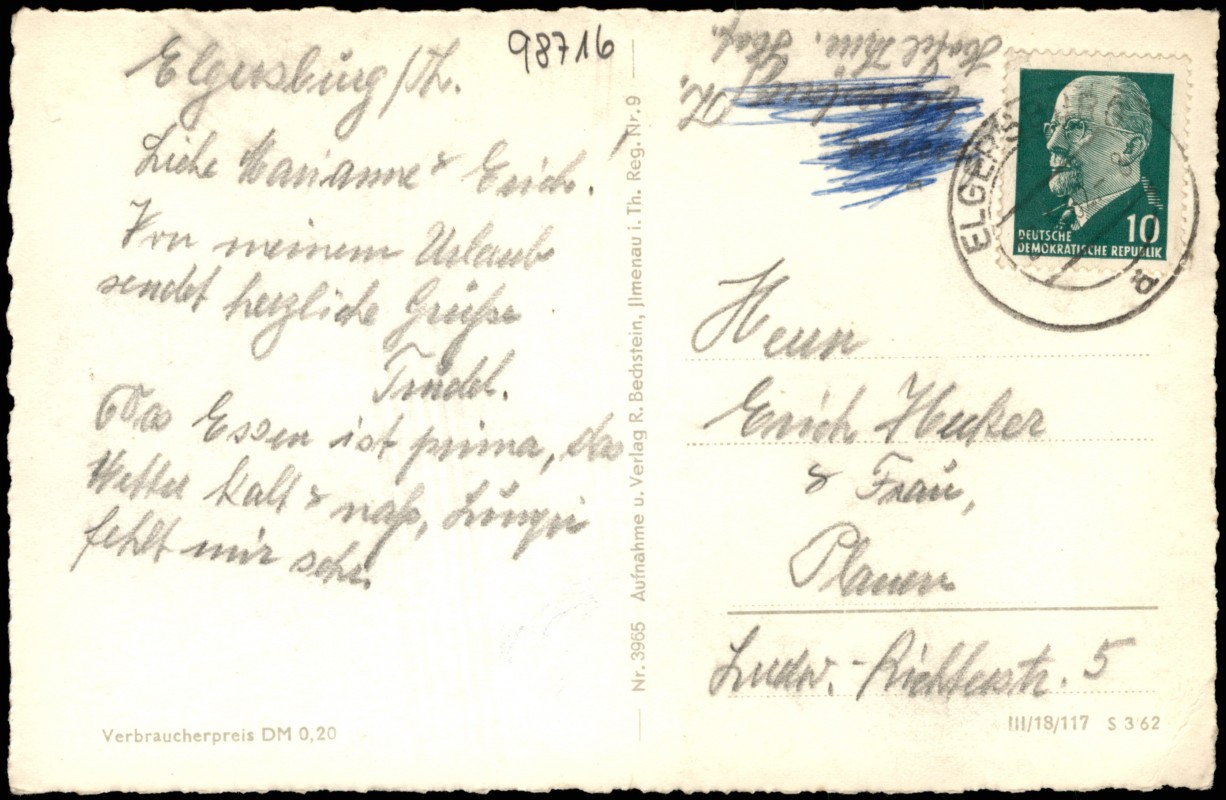 98716
Elgersburg/Th.
Liebe Marianne & Erich.
Von meinem Urlaub
sendet herzliche Grüße
Trudel.
Das Essen ist prima, das
Wetter kalt & naß,
fehlt mir sehr.
Verbraucherpreis DM 0,20
Nr. 3965 Aufnahme u. Verlag R. Bechstein, Jlmenau i. Th. Reg. Nr. 9
ELGERSBURG
10
DEUTSCHE
DEMOKRATISCHE REPUBLIK
Herrn
Erich
& Frau,
Plauen
Ludw.-Richterstr. 5
III/18/117 S 3 62